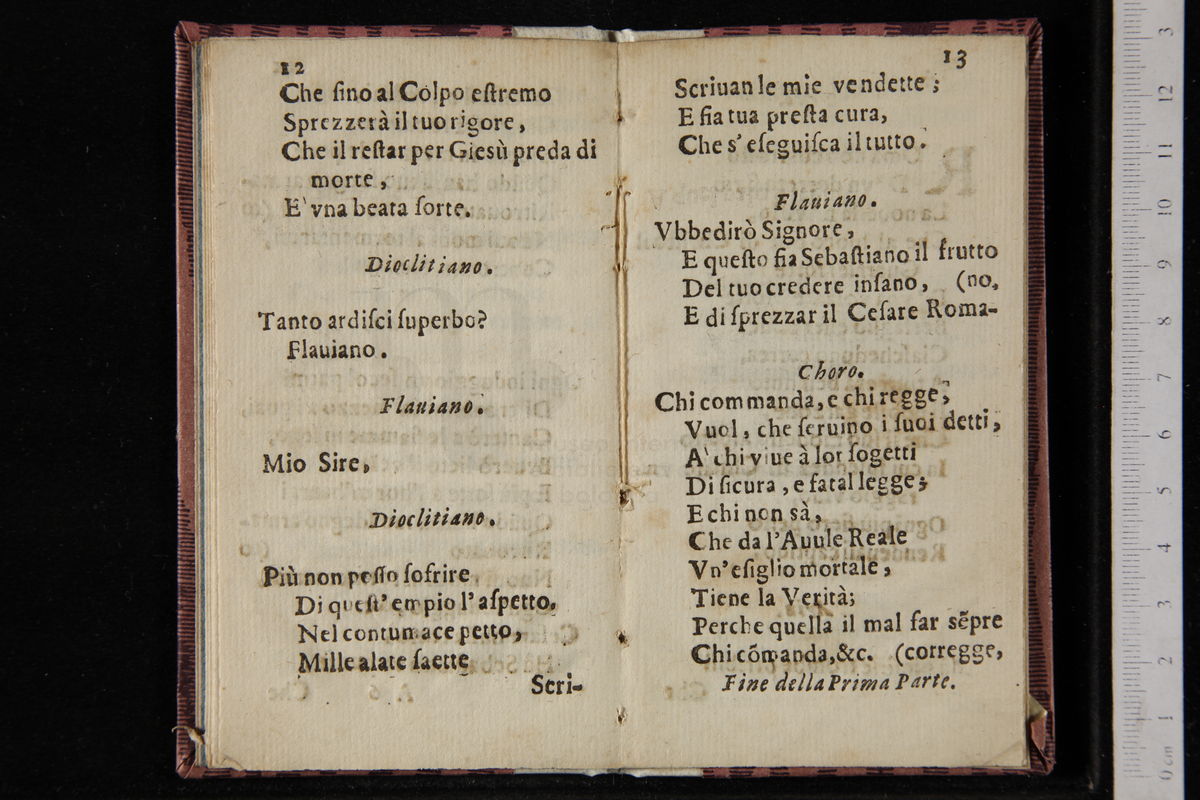 12
Che ſino al Colpo eſtremo
Sprezzerà il tuo rigore,
Che il reſtar per Giesù preda di
morte,
E' vna beata ſorte.
Dioclitiano.
Tanto ardiſci ſuperbo?
Flauiano.
Flauiano.
Mio Sire,
Dioclitiano.
Più non poſſo ſofrire
Di queſt' empio l' aſpetto.
Nel contumace petto,
Mille alate ſaette
Scri-
13
Scriuan le mie vendette;
E ſia tua preſta cura,
Che s' eſeguiſca il tutto.
Flauiano.
Vbbedirò Signore,
E queſto ſia Sebaſtiano il frutto
Del tuo credere inſano, (no.
E di ſprezzar il Ceſare Roma-
Choro.
Chi commanda, e chi regge;
Vuol, che ſeruino i ſuoi detti,
A' chi viue à lor ſogetti
Di ſicura, e fatal legge;
E chi non sà,
Che da l'Auule Reale
Vn' eſiglio mortale,
Tiene la Verità;
Perche quella il mal far sẽpre
Chi cõmanda,&c. (corregge,
Fine della Prima Parte.
3
12
11
10
9
8
7
6
5
4
3
2
1
0 cm